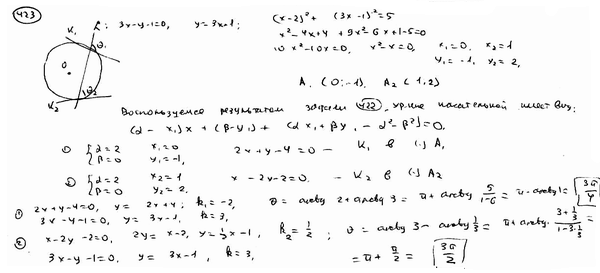 423
L: 3x-y-1=0, y=3x-1; (x-2)²+ (3x-1)²=5
x²-4x+4 + 9x²-6x+1-5=0
10x²-10x=0, x²-x=0, x₁=0, x₂=1
y₁=-1, y₂=2,
A₁ (0;-1), A₂ (1,2)
K₁
θ₁
O
θ₂
K₂
Воспользуемся результатом задачи 422, ур-ние касательной имеет вид:
(α - x₁)x + (β-y₁)y + (αx₁+βy₁ - α²-β²)=0,
① {α=2 x₁=0 2x+y-4=0 - K₁ в (.) A₁
β=0 y₁=-1,
② {α=2 x₂=1 x-2y-2=0. - K₂ в (.) A₂
β=0 y₂=2,
① 2x+y-4=0, y= 2x+4; k₁=-2, θ= arctg 2+arctg 3= π+arctg 5/(1-6) = π-arctg1= 3π/4
3x-y-1=0, y= 3x-1, k=3,
② x-2y-2=0, 2y= x-2, y=½x-1, k₂=½; θ= arctg 3- arctg ⅓= π+ arctg (3+⅓)/(1-3·⅓) =
3x-y-1=0, y= 3x-1, k=3, = π+ π/2 = 3π/2